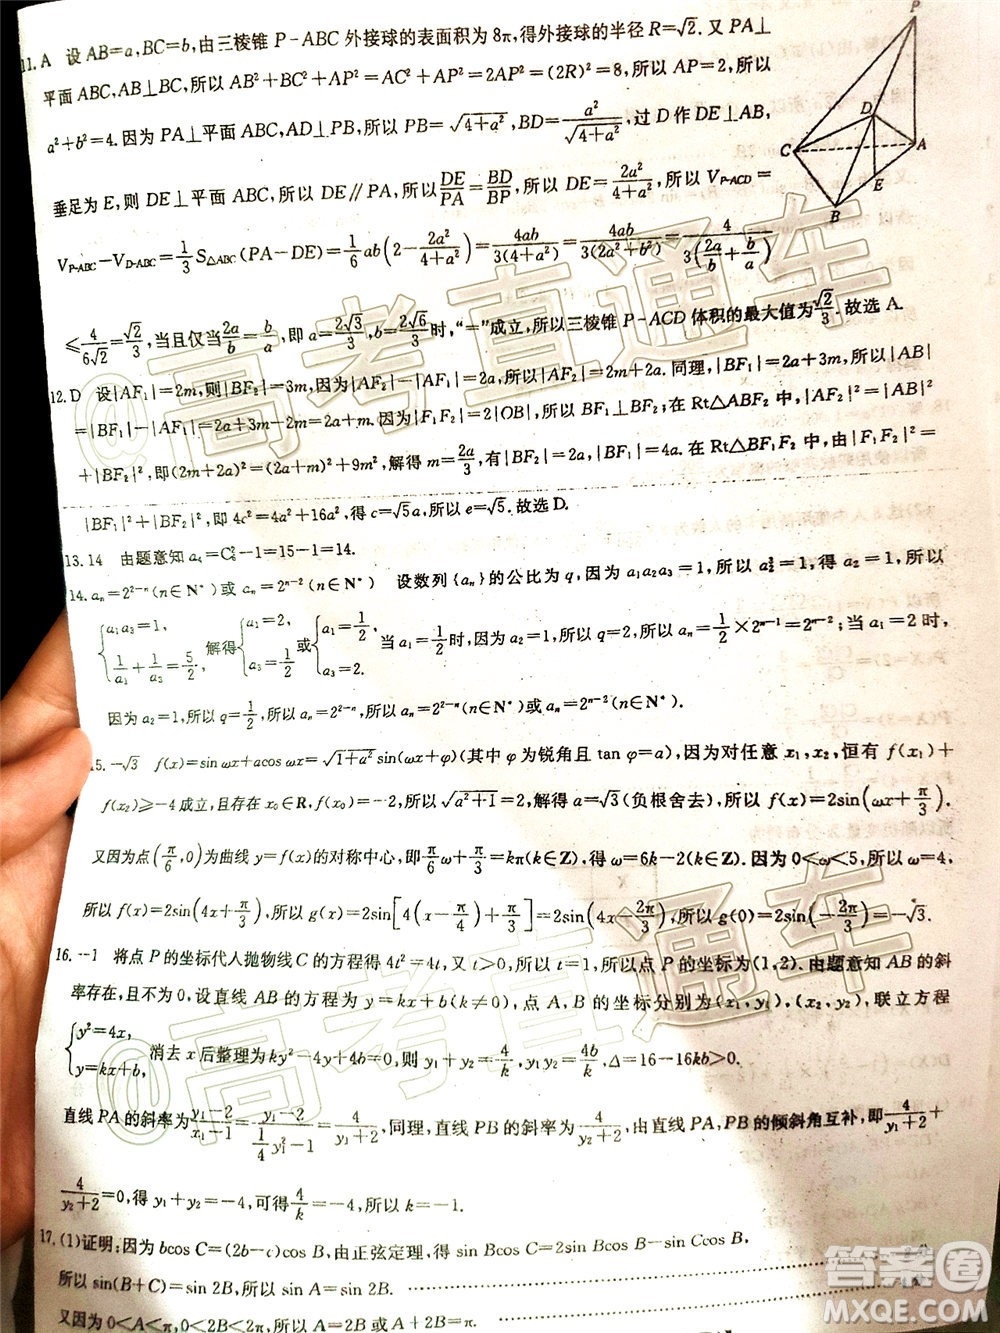 11. A 设 AB=a,BC=b,由三棱锥 P-ABC 外接球的表面积为 8π,得外接球的半径 R=√2. 又 PA⊥
平面 ABC,AB⊥BC,所以 AB²+BC²+AP²=AC²+AP²=2AP²=(2R)²=8,所以 AP=2,所以
a²+b²=4. 因为 PA⊥平面 ABC,AD⊥PB,所以 PB=√(4+a²),BD=a²/√(4+a²),过 D 作 DE⊥AB,
垂足为 E,则 DE⊥平面 ABC,所以 DE∥PA,所以 DE/PA=BD/BP,所以 DE=2a²/(4+a²),所以 V_{P-ACD}=
V_{P-ABC}-V_{D-ABC}=1/3 S_{△ABC}(PA-DE)=1/6 ab(2-2a²/(4+a²))=4ab/(3(4+a²))=4ab/(3(2a²+b²))=4/(3(2a/b+b/a))
≤4/(6√2)=√2/3,当且仅当 2a/b=b/a,即 a=2√3/3,b=2√6/3时,“=”成立,所以三棱锥 P-ACD 体积的最大值为√2/3.故选 A.
12. D 设|AF₁|=2m,则|BF₂|=3m,因为|AF₂|-|AF₁|=2a,所以|AF₂|=2a+2m.同理,|BF₁|=2a+3m,所以|AB|
=|BF₁|-|AF₁|=2a+3m-2m=2a+m.因为|F₁F₂|=2|OB|,所以 BF₁⊥BF₂,在 Rt△ABF₂ 中,|AF₂|²=|AB|²
+|BF₂|²,即(2m+2a)²=(2a+m)²+9m²,解得 m=2a/3,有|BF₂|=2a,|BF₁|=4a.在 Rt△BF₁F₂ 中,|F₁F₂|²=
|BF₁|²+|BF₂|²,即 4c²=4a²+16a²,得 c=√5a,所以 e=√5.故选 D.
13. 14 由题意知 a₄=C₆²-1=15-1=14.
14. aₙ=2²⁻ⁿ(n∈N*)或 aₙ=2ⁿ⁻²(n∈N*) 设数列{aₙ}的公比为 q,因为 a₁a₂a₃=1,所以 a₂³=1,得 a₂=1,所以
{a₁a₃=1, 1/a₁+1/a₃=5/2, 解得{a₁=2, a₃=1/2 或{a₁=1/2, a₃=2. 当 a₁=1/2时,因为 a₂=1,所以 q=2,所以 aₙ=1/2×2ⁿ⁻¹=2ⁿ⁻²;当 a₁=2 时,
因为 a₂=1,所以 q=1/2,所以 aₙ=2²⁻ⁿ,所以 aₙ=2²⁻ⁿ(n∈N*)或 aₙ=2ⁿ⁻²(n∈N*).
5. -√3 f(x)=sin ωx+acos ωx=√(1+a²) sin(ωx+φ)(其中 φ 为锐角且 tan φ=a),因为对任意 x₁,x₂,恒有 f(x₁)+
f(x₂)≥-4 成立,且存在 x₀∈R,f(x₀)=-2,所以√(a²+1)=2,解得 a=√3(负根舍去),所以 f(x)=2sin(ωx+π/3).
又因为点(π/6,0)为曲线 y=f(x)的对称中心,即π/6 ω+π/3=kπ(k∈Z),得 ω=6k-2(k∈Z).因为 0<ω<5,所以 ω=4,
所以 f(x)=2sin(4x+π/3),所以 g(x)=2sin[4(x-π/4)+π/3]=2sin(4x-2π/3),所以 g(0)=2sin(-2π/3)=-√3.
16. -1 将点 P 的坐标代人抛物线 C 的方程得 4t²=4t,又 t>0,所以 t=1,所以点 P 的坐标为(1,2).由题意知 AB 的斜
率存在,且不为 0,设直线 AB 的方程为 y=kx+b(k≠0),点 A,B 的坐标分别为(x₁,y₁),(x₂,y₂),联立方程
{y²=4x, y=kx+b, 消去 x 后整理为 ky²-4y+4b=0,则 y₁+y₂=4/k,y₁y₂=4b/k,Δ=16-16kb>0.
直线 PA 的斜率为(y₁-2)/(x₁-1)=(y₁-2)/(1/4 y₁²-1)=4/(y₁+2),同理,直线 PB 的斜率为4/(y₂+2),由直线 PA,PB 的倾斜角互补,即4/(y₁+2)+
4/(y₂+2)=0,得 y₁+y₂=-4,可得4/k=-4,所以 k=-1.
17. (1)证明:因为 bcos C=(2b-c)cos B,由正弦定理,得 sin Bcos C=2sin Bcos B-sin Ccos B,
所以 sin(B+C)=sin 2B,所以 sin A=sin 2B.
又因为 0<A<π,0<2B<2π,所以 A=2B 或 A+2B=π.
P
D
C
A
E
B
@高考直通车
@高考直通车
答案圈
MXQE.COM